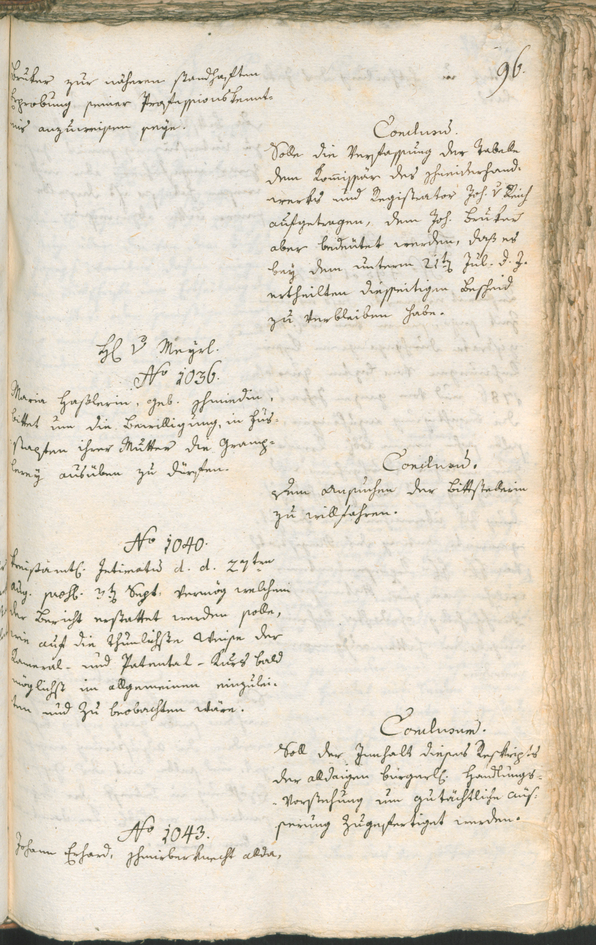 96.
Bruker zur näheren standhaften
Erprobung seiner Professions Kennt-
nis anzuweisen seye.
Conclusum.
Solle die Verfassung der Tabelle
dem Kommissär des Schneiderhand-
werks und Registrator Joh. v Reich
aufgetragen, dem Joh. Bruker
aber bedeutet werden, daß es
bey dem unterm 21ten Jul. d. J.
ertheilten diesseitigen Bescheid
zu verbleiben habe.
H. v. Meyrl.
No 1036.
Maria Haßlerin, geb. Schmiedin,
bittet um die Bewilligung, in Hüs-
stapften ihrer Mutter die Gramp-
lerey ausüben zu dürfen.
Conclusum.
Dem Ansuchen der Bittstellerin
zu willfahren.
No 1040.
Kreisämtl. Intimatum d. d. 27ten
Aug. prs. 3ten Sept. vermög welchem
der Bericht erstattet werden solle,
wie auf die thunlichste Weise der
Kameral- und Patental-Kurs bald
möglichst im allgemeinen einzulei-
ten und zu beobachten wäre.
Conclusum.
Soll der Innhalt dieses Reskripts
der alldaigen bürgerl. Handlungs-
-Vorstehung um gutächtliche Aüs-
serung zugefertiget werden.
No 1043.
Johann Erhard, knecht allda,